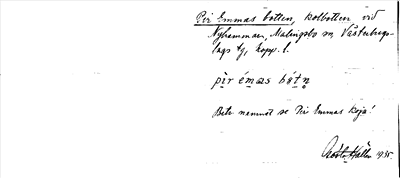 Per Emmas botten, kolbotten vid
Nyhammar, Malingsbo sn, Västerbergs-
lags tg, Kopp. l.
pèr émas båtṇ
Bete namnet se Per Emmas koja!
Gösta Hallén 1935.